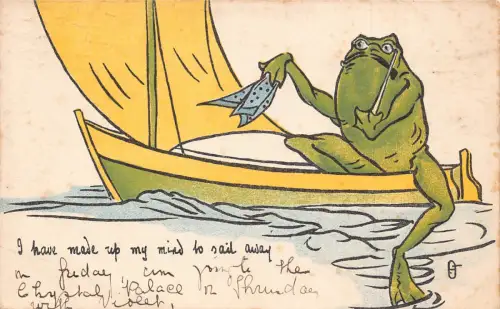 I have made up my mind to sail away
on friday, am going to the
Chrystal Palace on Thursday
with Violet,